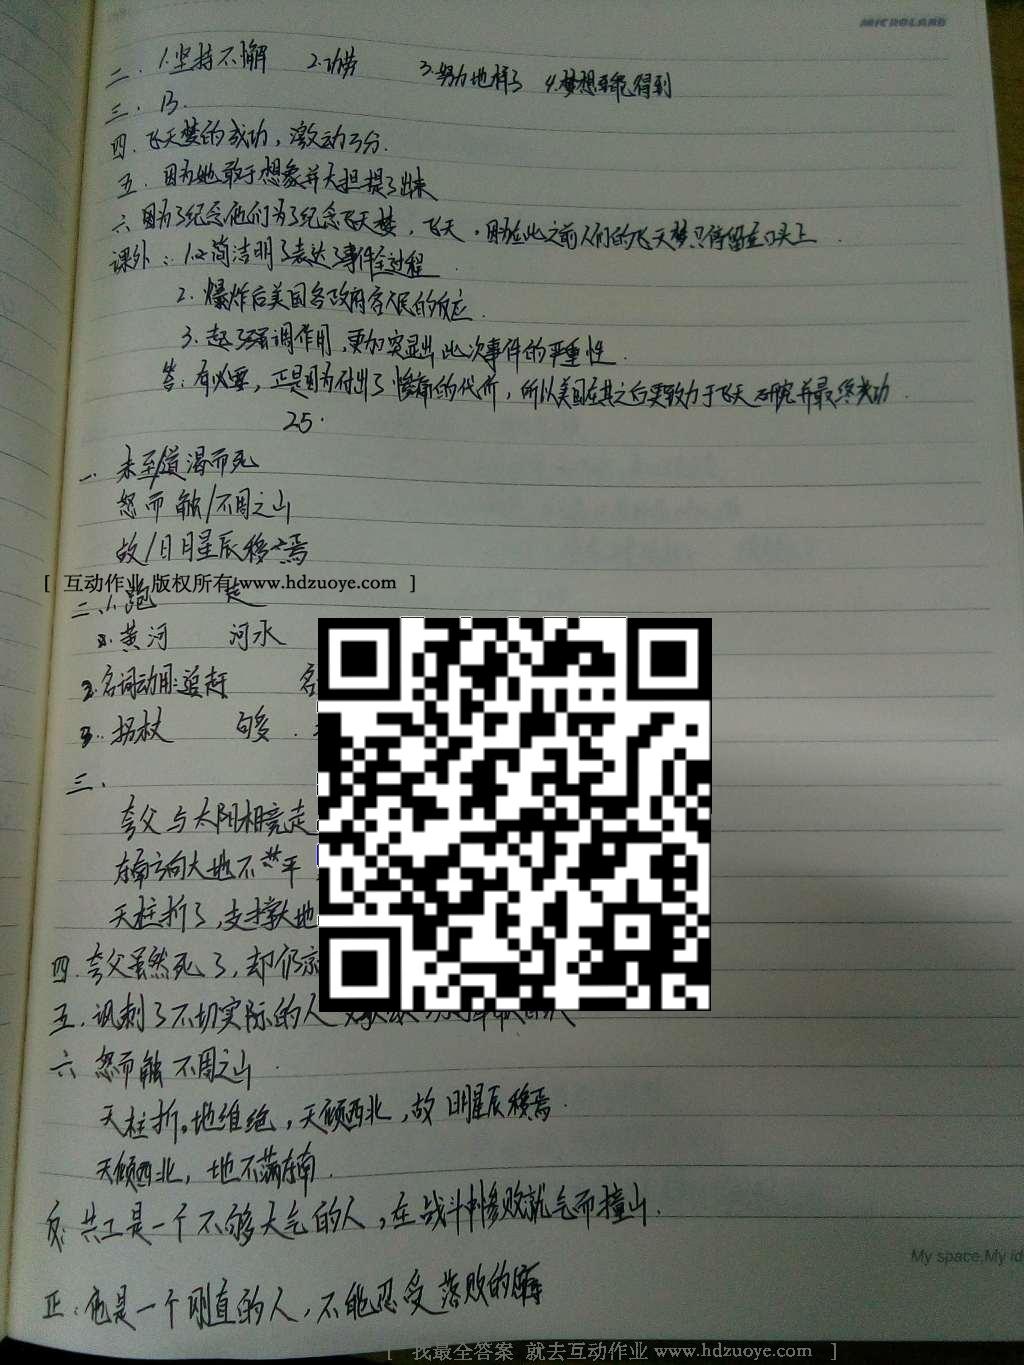 MICROLAND
二. 1.坚持不懈 2.功劳 3.努力地样子 4.梦想才能得到
三. B.
四. 飞天梦的成功,激动万分.
五. 因为她敢于想象并大担提了出来
六 因为了纪念他们为了纪念飞天梦,飞天,因为在此之前人们的飞天梦只停留在口头上.
课外: 1. 简洁明了表达了事件全过程.
2. 爆炸后美国各政府官人民的反应.
3. 起了强调作用,更加突显出此次事件的严重性.
答:有必要,正是因为付出了惨痛的代价,所以美国在其之后更致力于飞天研究并最终成功.
25.
一. 未至/道渴而死
怒而触/不周之山
故/日月星辰移焉
[ 互动作业 版权所有 www.hdzuoye.com ]
二、1. 跑 走
黄河 河水
名词动用:追赶 名
拐杖 够.
三.
夸父与太阳相竞走
东南方向大地不平
天柱折了,支撑大地
四.夸父虽然死了,却仍
五.讽刺了不切实际的人
六 怒而触不周之山.
天柱折。地维绝,天倾西北,故日月星辰移焉.
天倾西北,地不满东南.
反:共工是一个不够大气的人,在战斗中惨败就气而撞山.
My space,My id
正:他是一个刚直的人,不能忍受落败的
[ 找最全答案 就去互动作业 www.hdzuoye.com ]